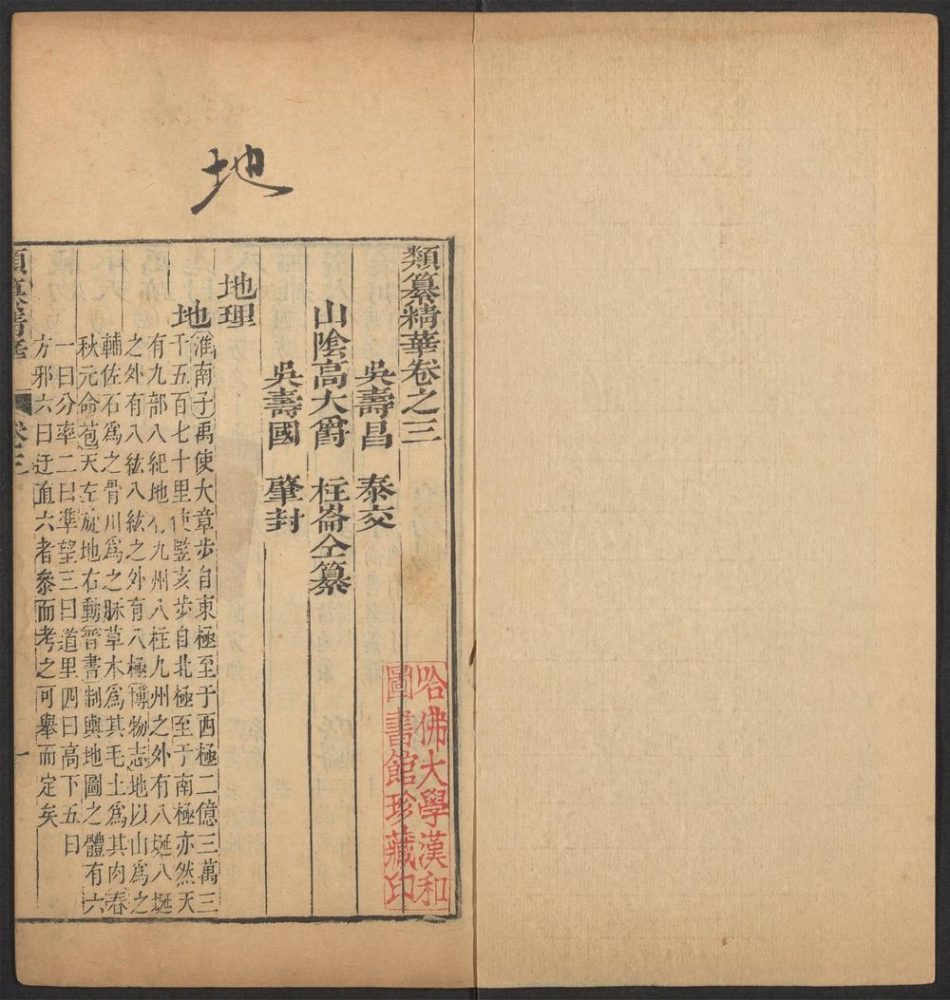 地
類纂精華卷之三
吳壽昌　泰交
山陰高大爵　柱崙仝纂
吳壽國　肇封
地理
地
淮南子禹使大章歩自東極至于西極二億三萬三
千五百七十里使竪亥歩自北極至于南極亦然天
有九部八紀地有九州八柱九州之外有八埏八埏
之外有八紘八紘之外有八極博物志地以山爲之
輔佐石爲之骨川爲之脉草木爲其毛土爲其肉春
秋元命苞天左旋地右動晉書制輿地圖之體有六
一曰分率二曰準望三曰道里四曰高下五曰
方邪六曰迂直六者叅而考之可舉而定矣
類纂精華　卷三　一
哈佛大學漢和
圖書館珍藏印